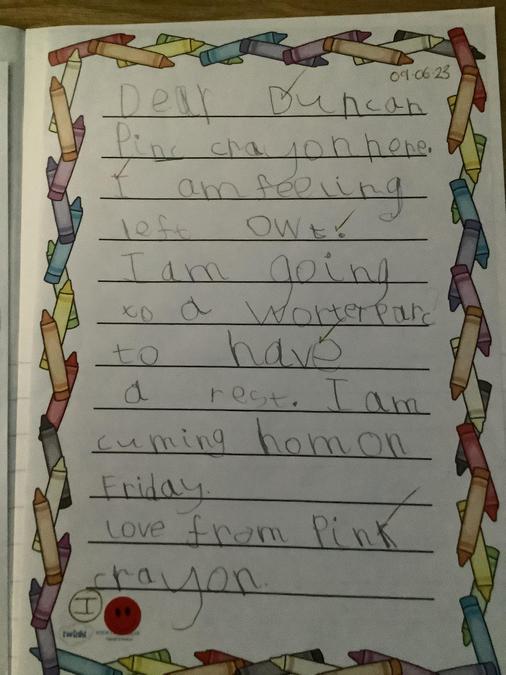 09.06.23
Dear Duncan
Pinc crayon here.
I am feeling
left owt.
I am going
to a worterparc
to have
a rest. I am
cuming hom on
Friday.
love from Pink
crayon.
I
twinkl